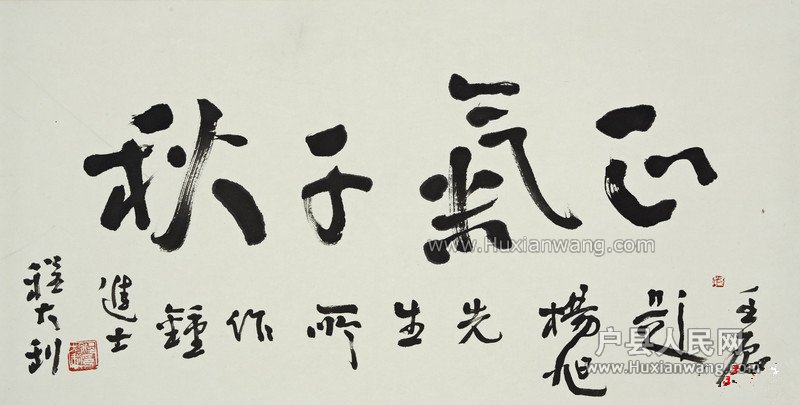 正氣千秋
壬辰題楊旭先生所作鍾進士
程大利
户县人民网
www.Huxianwang.com
户县人民网
www.Huxianwang.com